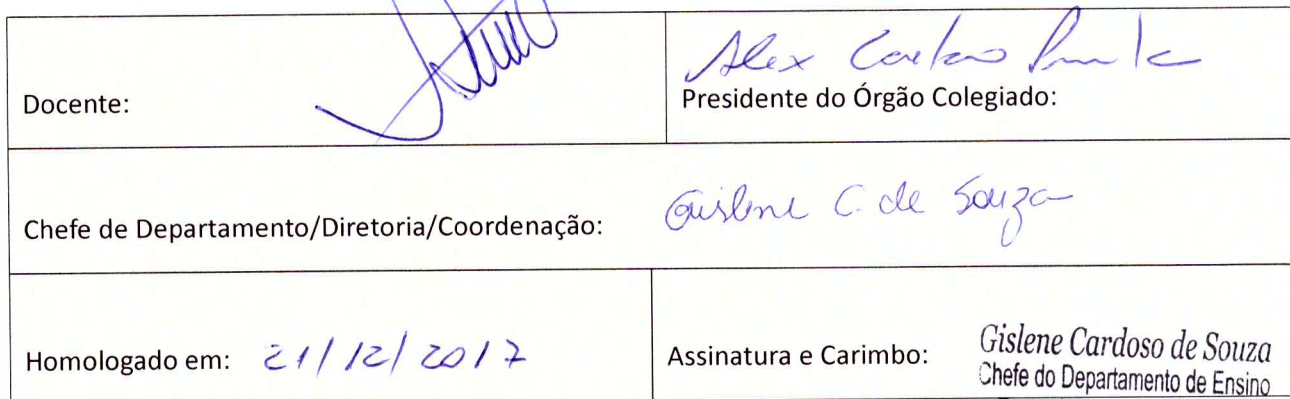 Docente:
Alex
Presidente do Órgão Colegiado:
Chefe de Departamento/Diretoria/Coordenação: Gislene C. de Souza
Homologado em: 21/12/2017
Assinatura e Carimbo: Gislene Cardoso de Souza
Chefe do Departamento de Ensino